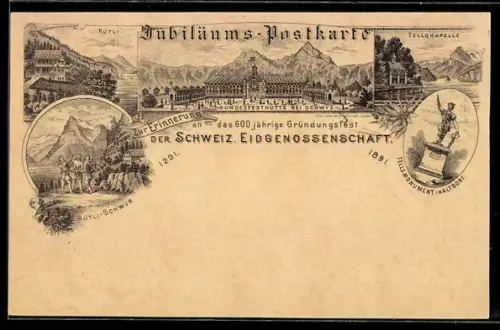 Jubiläums-Postkarte
RÜTLI
TELLSKAPELLE
BUNDESFESTHÜTTE BEI SCHWYZ
Zur Erinnerung
an das 600 jährige Gründungsfest
DER SCHWEIZ. EIDGENOSSENSCHAFT.
1291.
1891.
RÜTLI-SCHWUR
TELLSMONUMENT IN ALTDORF.